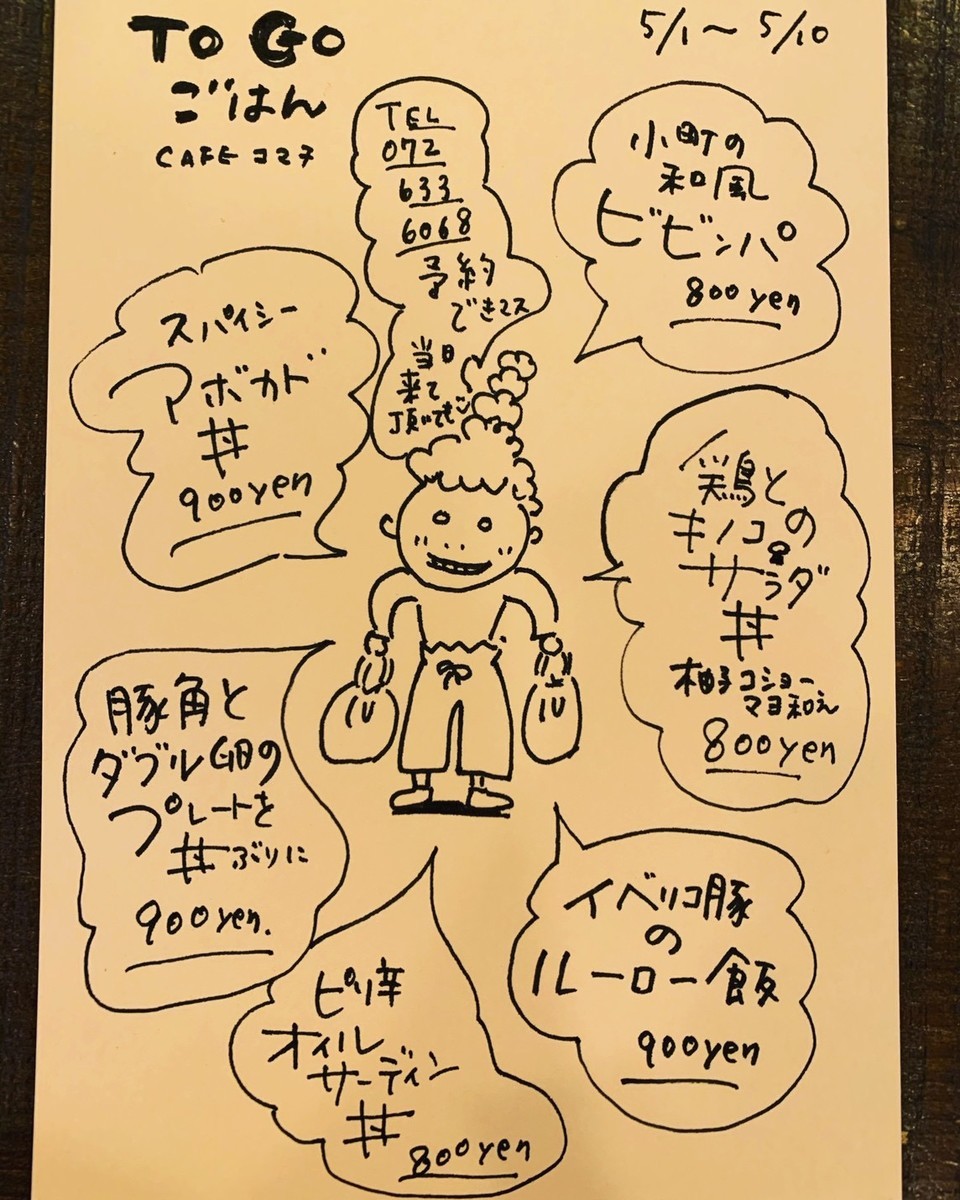 TO GO
ごはん
CAFE コマチ
5/1〜5/10
TEL
072
633
6068
予約
できマス
当日
来て
頂いても
小町の
和風
ビビンパ
800yen
スパイシー
アボカド
丼
900yen
鶏と
キノコの
サラダ
丼
柚子コショー
マヨ和え
800yen
豚角と
ダブル卵の
プレートを
丼ぶりに
900yen.
イベリコ豚
の
ルーロー飯
900yen
ピリ辛
オイル
サーディン
丼
800yen